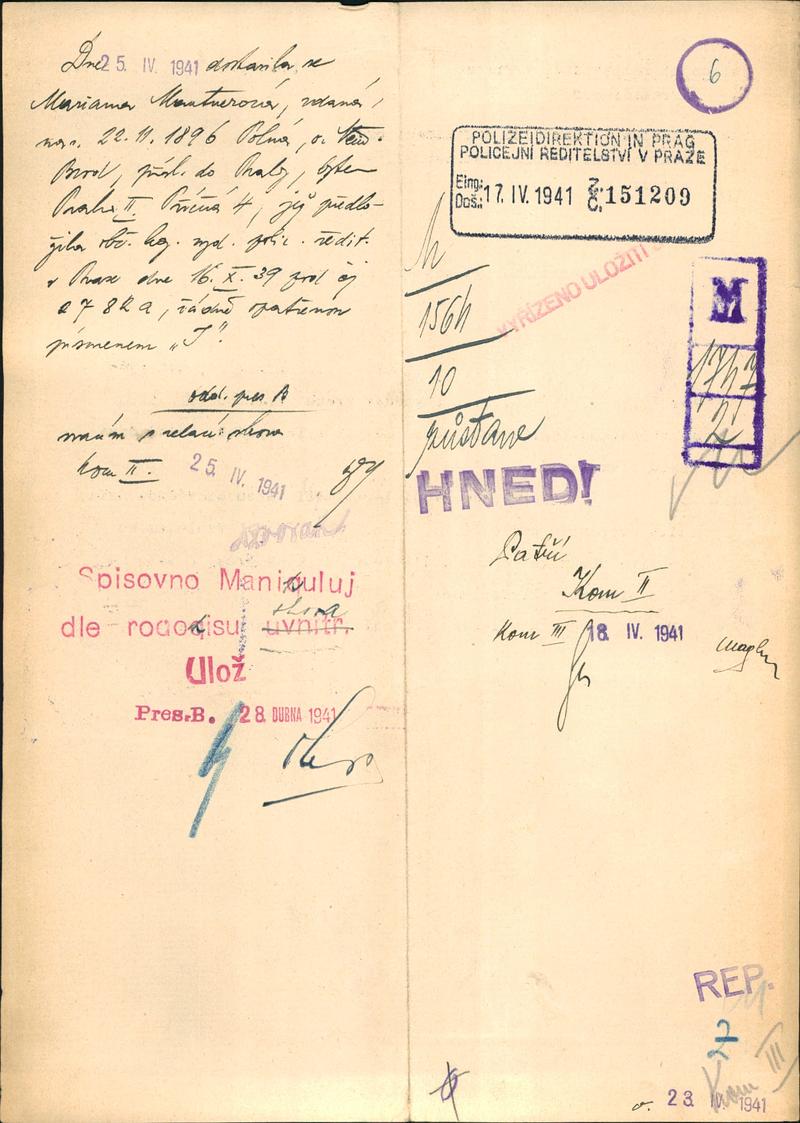 Dne 25. IV. 1941 dostavila se
Mautnerová, vdaná,
nar. 22.11.1896 Polná, o. Něm.
Brod, přísl. do Prahy, bytem
Praha II. Příčná 4, jež předlo-
žila obč. leg. vyd. polic. ředit.
v Praze dne 16. X. 39 pod čj
řádně opatřenou
písmenem „J".
odd. pres. B
vracím s relací shora
kom II. 25. IV. 1941
Spisovno Manipuluj
dle rodopisu uvnitř.
shora
Ulož
Pres.B. 28. DUBNA 1941
6
POLIZEIDIREKTION IN PRAG
POLICEJNÍ ŘEDITELSTVÍ V PRAZE
Eing.:
Doš.: 17. IV. 1941 Z. Č. 151209
VYŘÍZENO ULOŽITI
M
1747
156h
10
zůstane
HNED!
Patří
Kom II
Kom III 18. IV. 1941
REP.
2
Kom III
23. IV. 1941